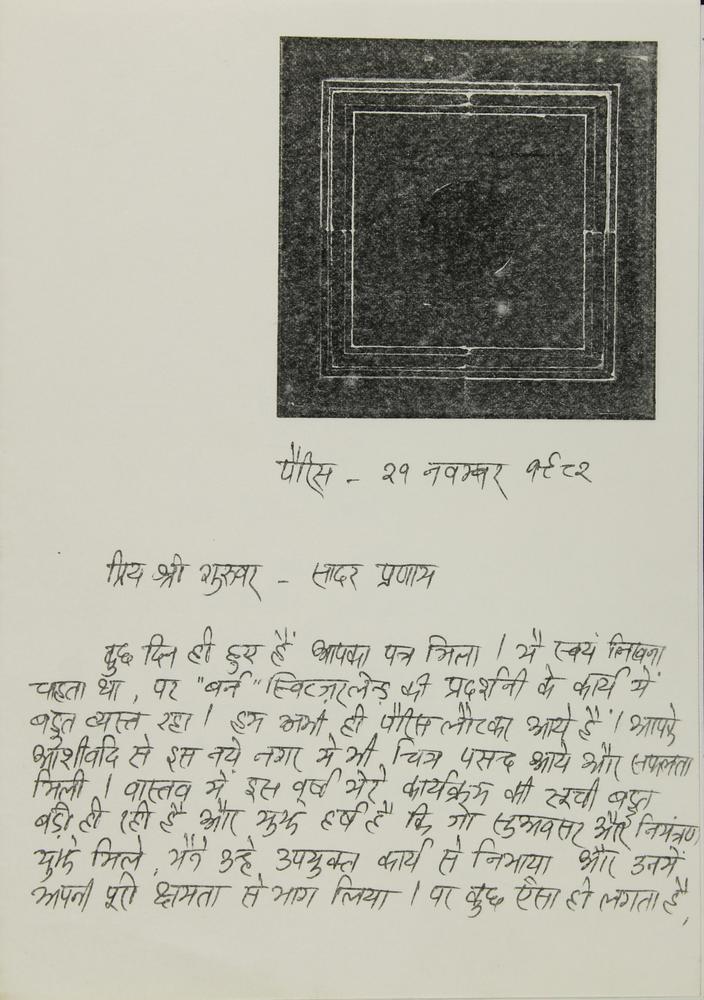 पैरिस - २१ नवम्बर १९८२
प्रिय श्री गुरुवर - सादर प्रणाम
कुछ दिन ही हुए हैं आपका पत्र मिला । मैं स्वयं लिखना
चाहता था , पर "बर्न" स्विटज़रलेन्ड की प्रदर्शनी के कार्य में
बहुत व्यस्त रहा । हम अभी ही पैरिस लौटकर आये हैं । आपके
आशीर्वाद से इस नये नगर में भी चित्र पसन्द आये और सफलता
मिली । वास्तव में इस वर्ष मेरे कार्यक्रम की सूची बहुत
बड़ी ही रही है और मुझे हर्ष है कि जो सुअवसर और निमंत्रण
मुझे मिले , मैंने उन्हे उपयुक्त कार्य से निभाया और उनमें
अपनी पूरी क्षमता से भाग लिया । पर कुछ ऐसा ही लगता है ,